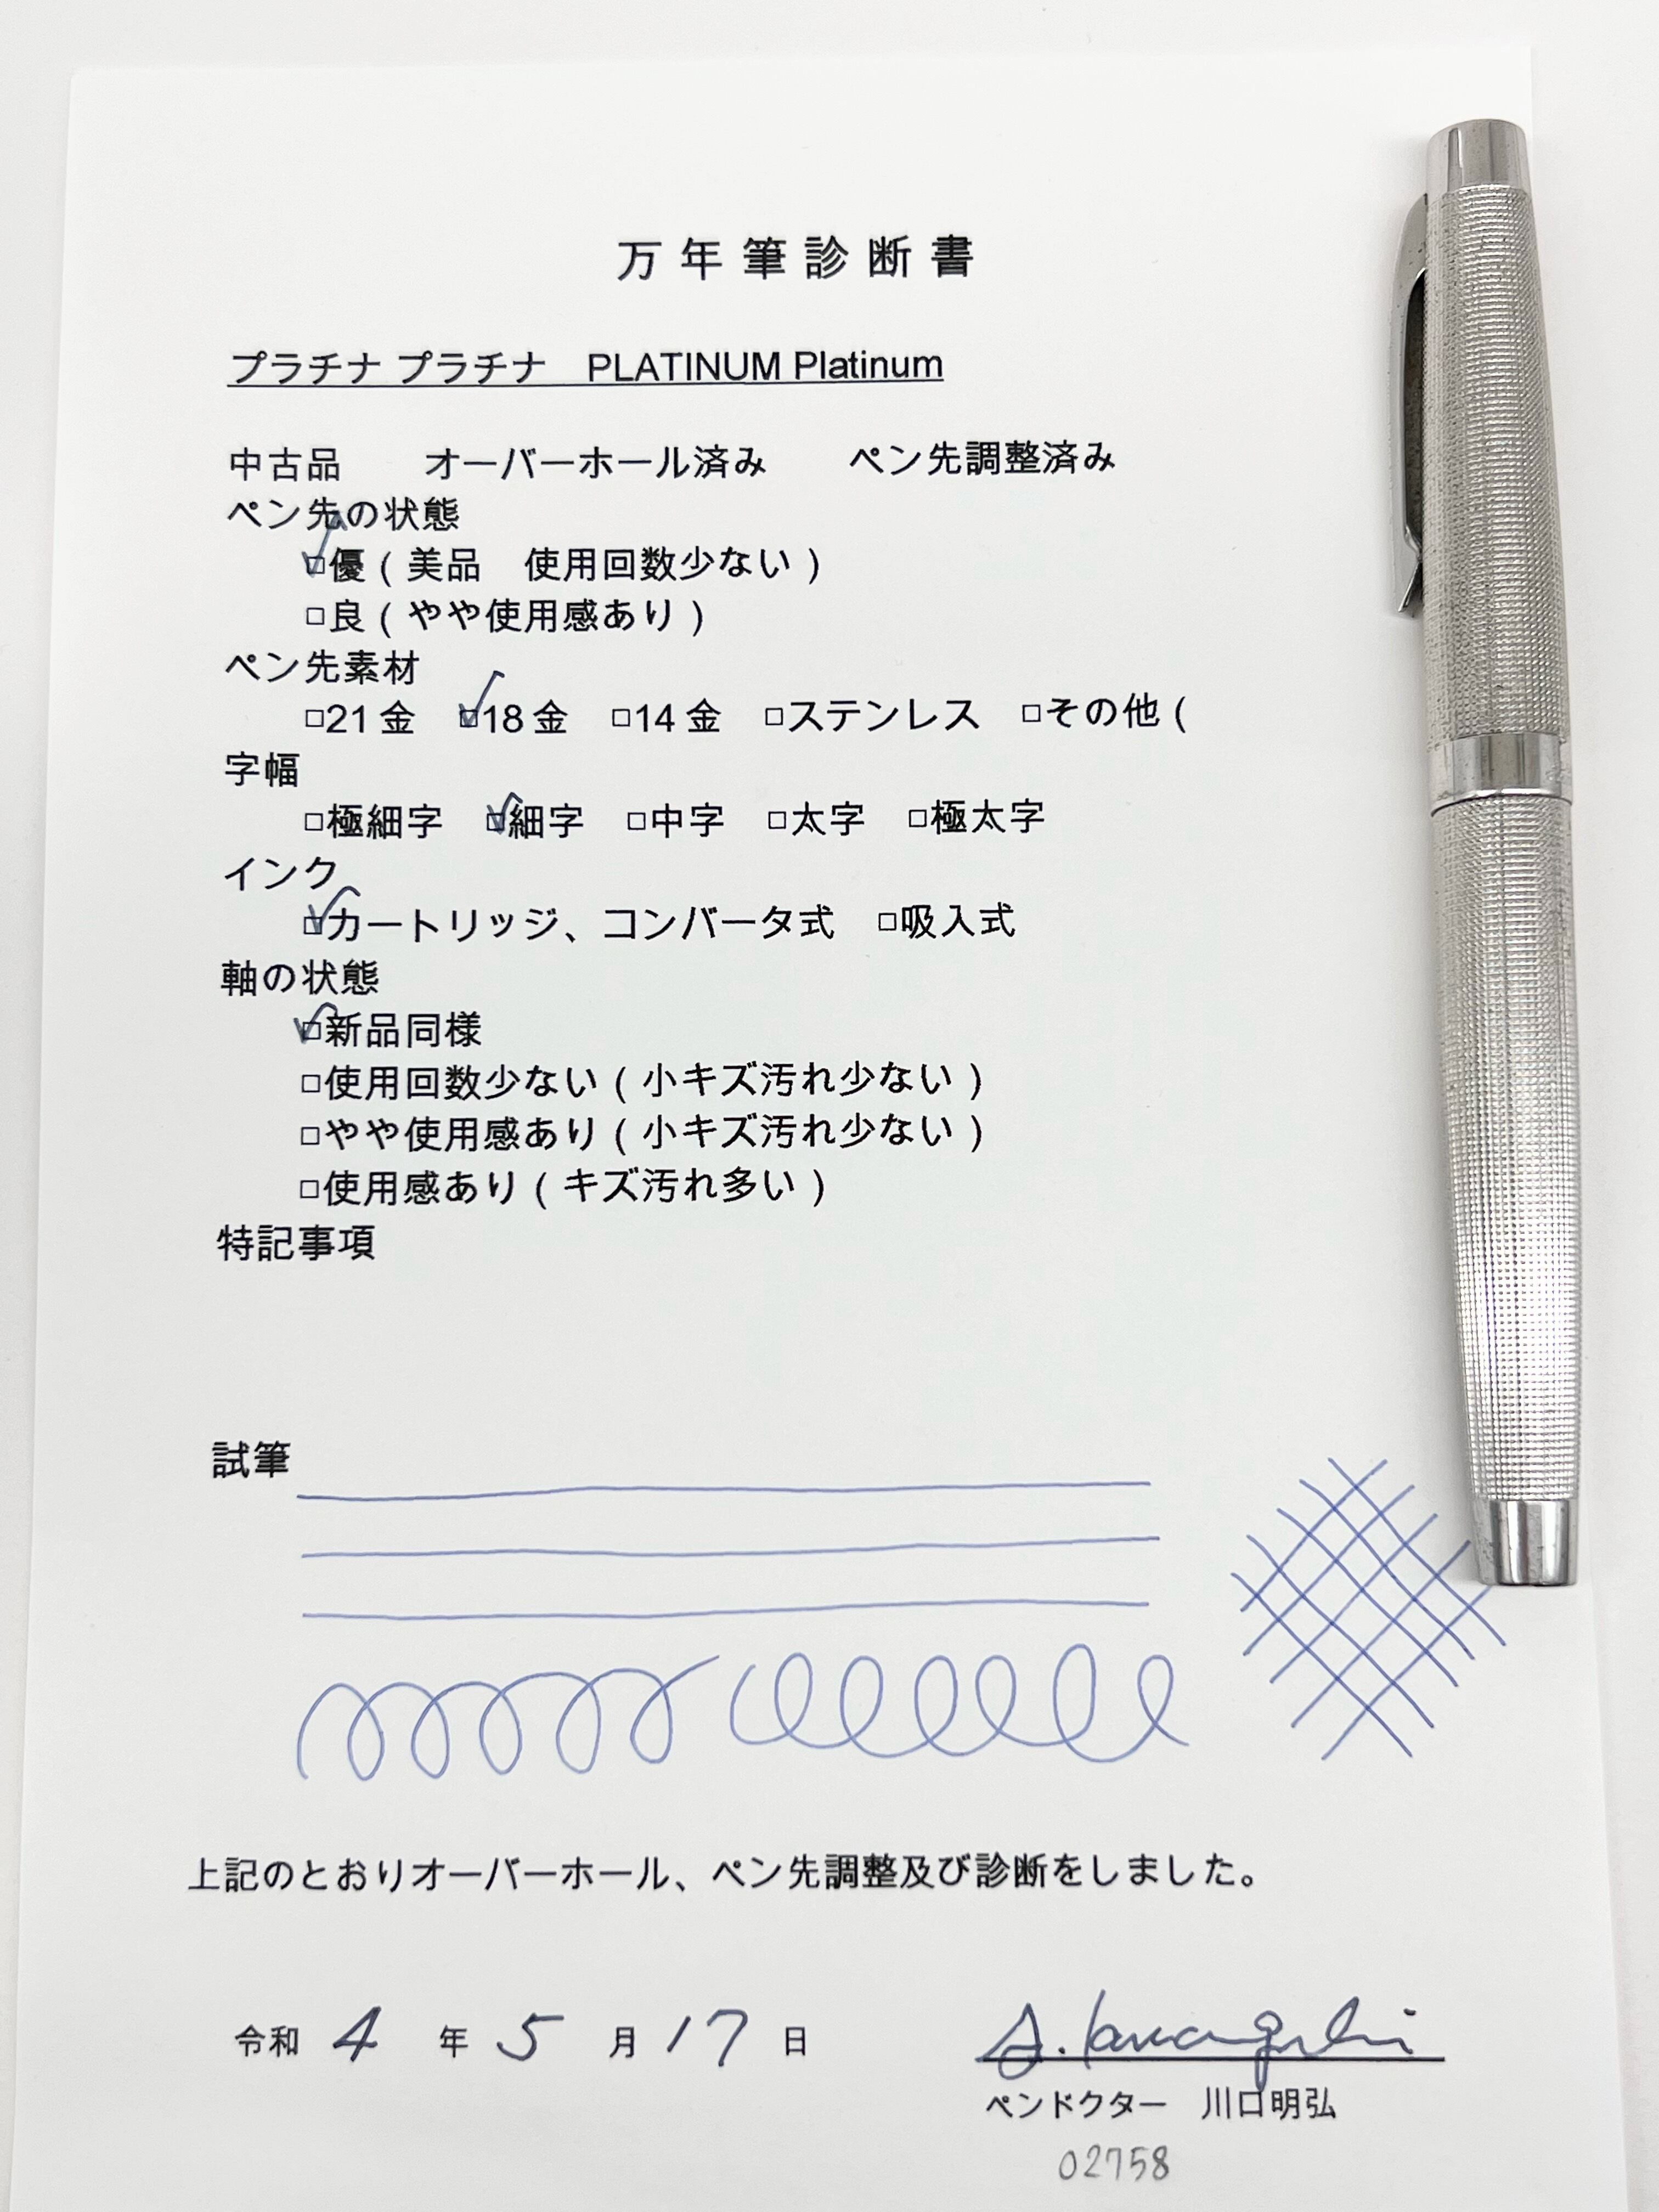 万年筆診断書
プラチナ プラチナ　PLATINUM Platinum
中古品　　オーバーホール済み　　ペン先調整済み
ペン先の状態
☑優（美品　使用回数少ない）
□良（やや使用感あり）
ペン先素材
□21金　☑18金　□14金　□ステンレス　□その他（
字幅
□極細字　☑細字　□中字　□太字　□極太字
インク
☑カートリッジ、コンバータ式　□吸入式
軸の状態
☑新品同様
□使用回数少ない（小キズ汚れ少ない）
□やや使用感あり（小キズ汚れ少ない）
□使用感あり（キズ汚れ多い）
特記事項
試筆
上記のとおりオーバーホール、ペン先調整及び診断をしました。
令和 4 年 5 月 17 日
ペンドクター　川口明弘
02758